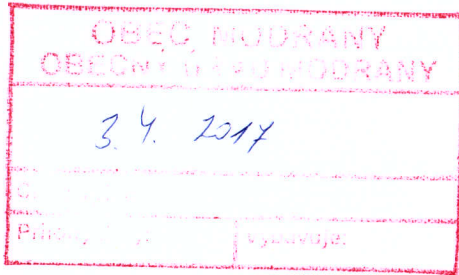 OBEC MODRANY
OBECNÝ ÚRAD MODRANY
3. 4. 2017
vybavuje: